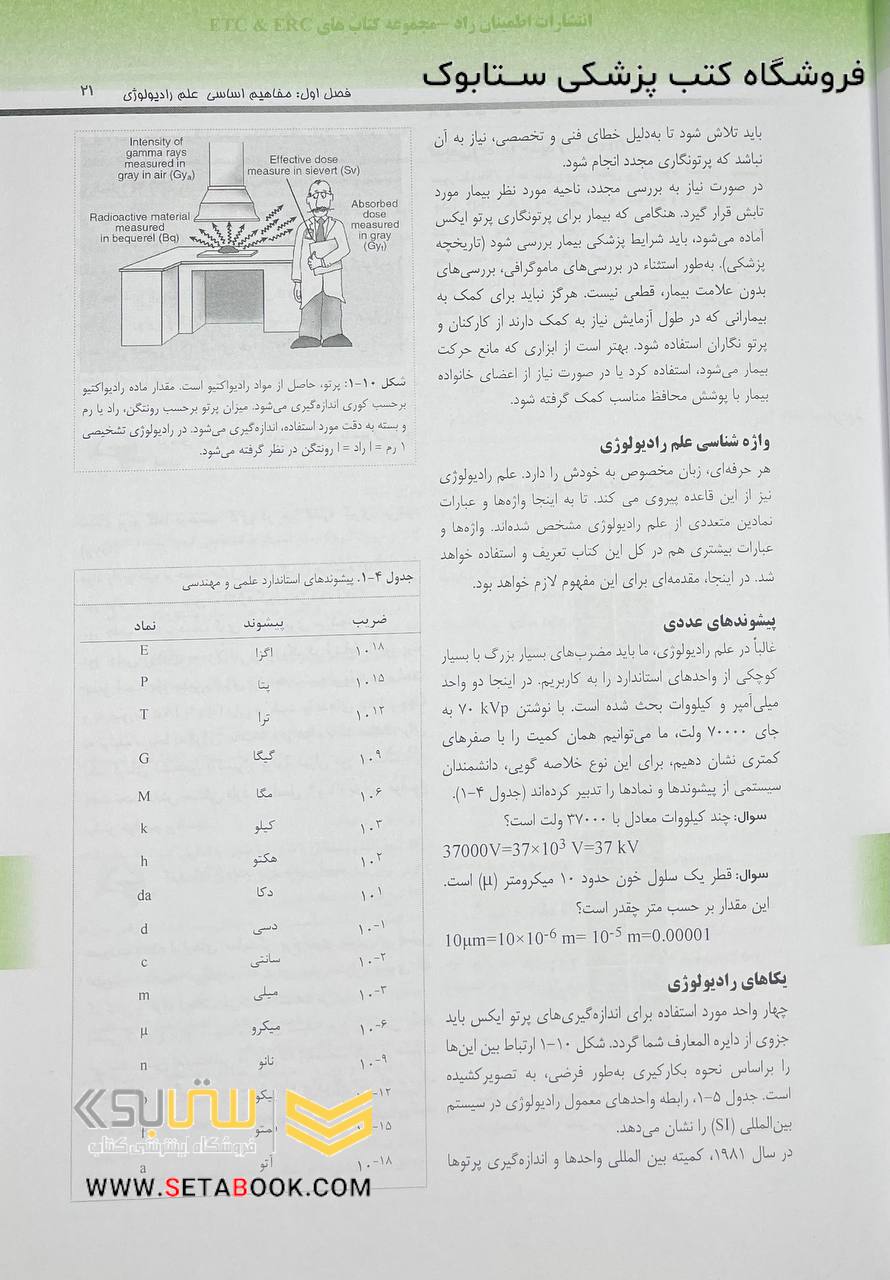 انتشارات اطمینان راد -مجموعه کتاب های ETC & ERC
فروشگاه کتب پزشکی ستابوک
فصل اول: مفاهیم اساسی علم رادیولوژی
۲۱
باید تلاش شود تا به‌دلیل خطای فنی و تخصصی، نیاز به آن
نباشد که پرتونگاری مجدد انجام شود.
در صورت نیاز به بررسی مجدد، ناحیه مورد نظر بیمار مورد
تابش قرار گیرد. هنگامی که بیمار برای پرتونگاری پرتو ایکس
آماده می‌شود، باید شرایط پزشکی بیمار بررسی شود (تاریخچه
پزشکی). به‌طور استثناء در بررسی‌های ماموگرافی، بررسی‌های
بدون علامت بیمار، قطعی نیست. هرگز نباید برای کمک به
بیمارانی که در طول آزمایش نیاز به کمک دارند از کارکنان و
پرتو نگاران استفاده شود. بهتر است از ابزاری که مانع حرکت
بیمار می‌شود، استفاده کرد یا در صورت نیاز از اعضای خانواده
بیمار با پوشش محافظ مناسب کمک گرفته شود.
واژه شناسی علم رادیولوژی
هر حرفه‌ای، زبان مخصوص به خودش را دارد. علم رادیولوژی
نیز از این قاعده پیروی می کند. تا به اینجا واژه‌ها و عبارات
نمادین متعددی از علم رادیولوژی مشخص شده‌اند. واژه‌ها و
عبارات بیشتری هم در کل این کتاب تعریف و استفاده خواهد
شد. در اینجا، مقدمه‌ای برای این مفهوم لازم خواهد بود.
پیشوندهای عددی
غالباً در علم رادیولوژی، ما باید مضرب‌های بسیار بزرگ با بسیار
کوچکی از واحدهای استاندارد را به کاربریم. در اینجا دو واحد
میلی‌آمپر و کیلووات بحث شده است. با نوشتن ۷۰ kVp به
جای ۷۰۰۰۰ ولت، ما می‌توانیم همان کمیت را با صفرهای
کمتری نشان دهیم، برای این نوع خلاصه گویی، دانشمندان
سیستمی از پیشوندها و نمادها را تدبیر کرده‌اند (جدول ۴-۱).
سوال: چند کیلووات معادل با ۳۷۰۰۰ ولت است؟
37000V=37×10³ V=37 kV
سوال: قطر یک سلول خون حدود ۱۰ میکرومتر (μ) است.
این مقدار بر حسب متر چقدر است؟
10μm=10×10⁻⁶ m= 10⁻⁵ m=0.00001
یکاهای رادیولوژی
چهار واحد مورد استفاده برای اندازه‌گیری‌های پرتو ایکس باید
جزوی از دایره المعارف شما گردد. شکل ۱۰-۱ ارتباط بین این‌ها
را براساس نحوه بکارگیری به‌طور فرضی، به تصویرکشیده
است. جدول ۵-۱، رابطه واحدهای معمول رادیولوژی در سیستم
بین‌المللی (SI) را نشان می‌دهد.
در سال ۱۹۸۱، کمیته بین المللی واحدها و اندازه‌گیری پرتوها
Intensity of
gamma rays
measured in
gray in air (Gyₐ)
Effective dose
measure in sievert (Sv)
Radioactive material
measured
in bequerel (Bq)
Absorbed
dose
measured
in gray
(Gyₜ)
شکل ۱۰-۱: پرتو، حاصل از مواد رادیواکتیو است. مقدار ماده رادیواکتیو
برحسب کوری اندازه‌گیری می‌شود. میزان پرتو برحسب رونتگن، راد یا رم
و بسته به دقت مورد استفاده، اندازه‌گیری می‌شود. در رادیولوژی تشخیصی
۱ رم = ۱ راد = ۱ رونتگن در نظر گرفته می‌شود.
جدول ۴-۱. پیشوندهای استاندارد علمی و مهندسی
ضریب پیشوند نماد
۱۰¹⁸ اگزا E
۱۰¹⁵ پتا P
۱۰¹² ترا T
۱۰⁹ گیگا G
۱۰⁶ مگا M
۱۰³ کیلو k
۱۰² هکتو h
۱۰¹ دکا da
۱۰⁻¹ دسی d
۱۰⁻² سانتی c
۱۰⁻³ میلی m
۱۰⁻⁶ میکرو μ
۱۰⁻⁹ نانو n
۱۰⁻¹⁸ آتو a
ستابوک
فروشگاه اینترنتی کتاب
WWW.SETABOOK.COM